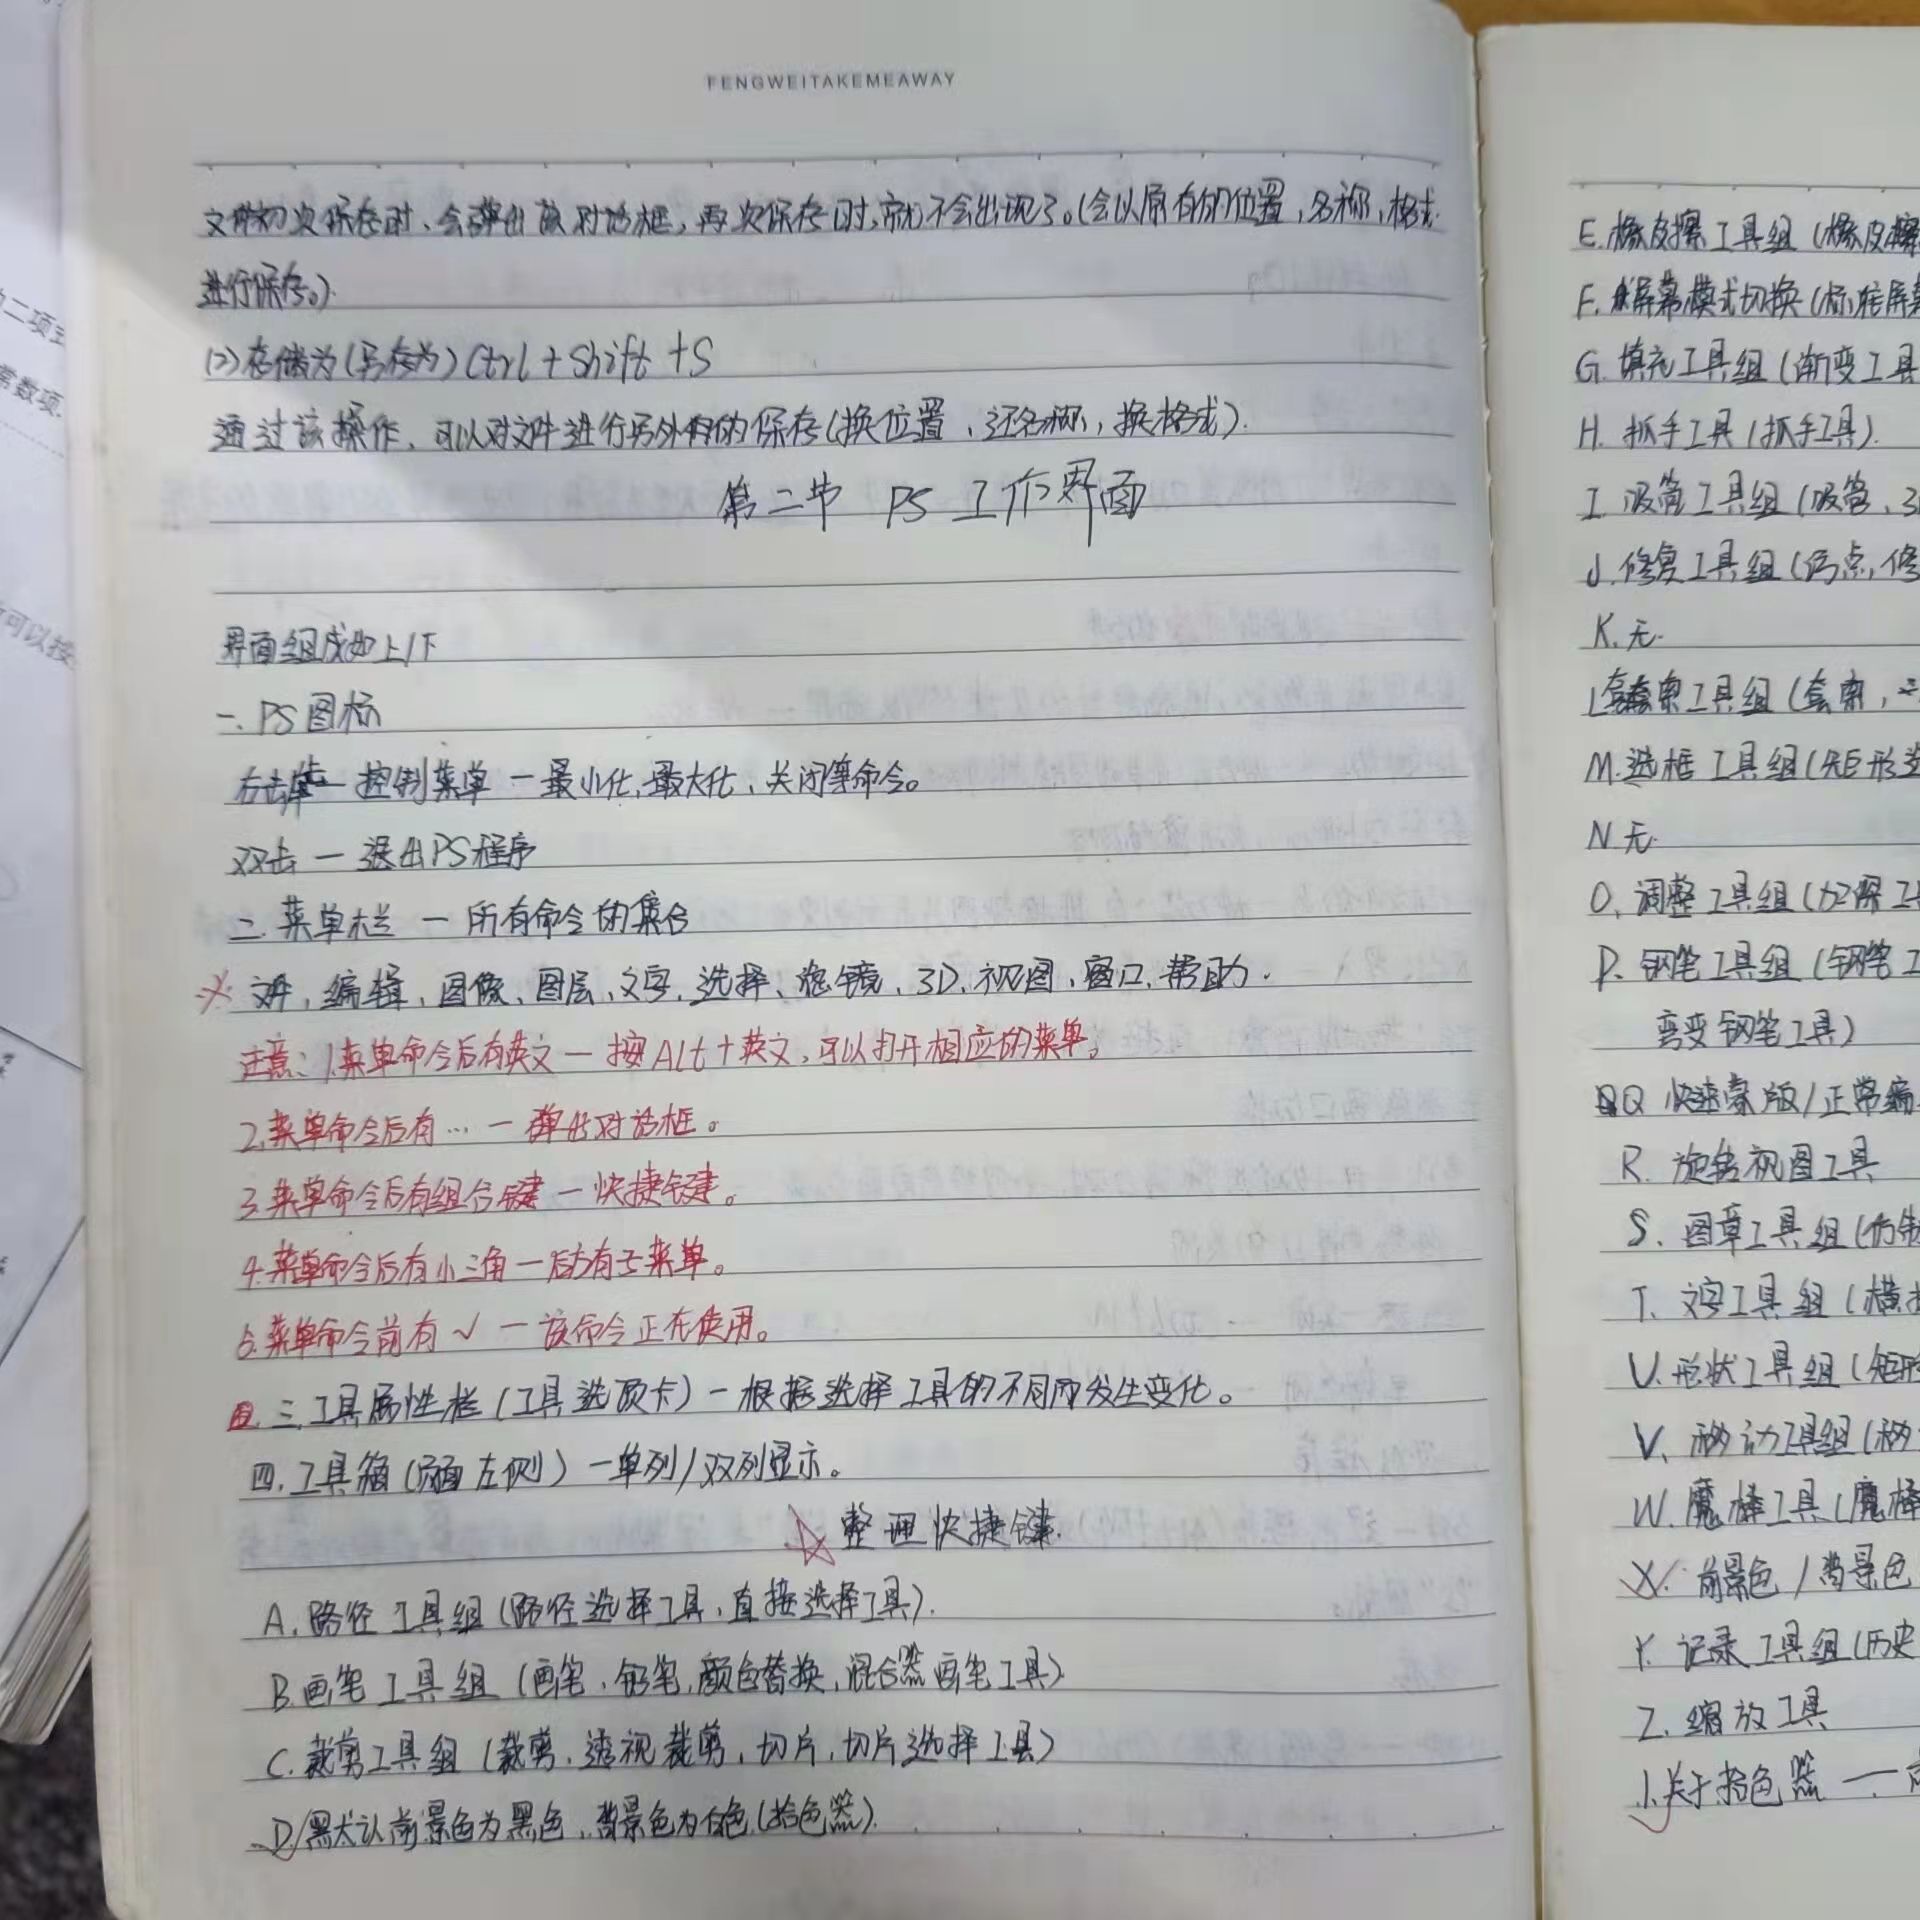 FENGWEITAKEMEAWAY
文件初次保存时、会弹出该对话框,再次保存时,就不会出现了。(会以原有的位置,名称,格式
进行保存。)
(2)存储为(另存为)Ctrl+Shift+S
通过该操作,可以对文件进行另外的保存(换位置、还名称,换格式).
第二节 PS 工作界面
界面组成如上/下
一.PS图标
右击 — 控制菜单 — 最小化,最大化、关闭等命令。
双击 — 退出PS程序
二.菜单栏 — 所有命令的集合
文件,编辑,图像、图层、文字,选择、滤镜,3D,视图,窗口,帮助.
注意:1.菜单命令后有英文 — 按Alt+英文,可以打开相应的菜单。
2.菜单命令后有… — 弹出对话框。
3.菜单命令后有组合键 — 快捷键。
4.菜单命令后有小三角 — 后方有子菜单。
5.菜单命令前有√ — 该命令正在使用。
三.工具属性栏(工具选项卡) — 根据选择工具的不同而发生变化。
四.工具箱(页面左侧) — 单列/双列显示。
☆整理快捷键.
A.路径工具组(路径选择工具,直接选择工具).
B.画笔工具组(画笔,铅笔,颜色替换,混合器画笔工具)
C.裁剪工具组(裁剪,透视裁剪,切片,切片选择工具)
D.默认前景色为黑色,背景色为白色(拾色器).
E.橡皮擦工具组(橡皮擦
F.屏幕模式切换(标准屏幕
G.填充工具组(渐变工具
H.抓手工具(抓手工具).
I.吸管工具组(吸管,3
J.修复工具组(污点,修
K.无.
L.套索工具组(套索,
M.选框工具组(矩形选
N.无.
O.调整工具组(加深工具
P.钢笔工具组(钢笔工
弯变钢笔工具)
Q 快速蒙版/正常编
R.旋转视图工具
S.图章工具组(仿制
T.文字工具组(横排
U.形状工具组(矩形
V.移动工具组(移
W.魔棒工具(魔棒
X.前景色/背景色
Y.记录工具组(历史
Z.缩放工具
1.关于拾色器 —
二项式
常数项.
可以按